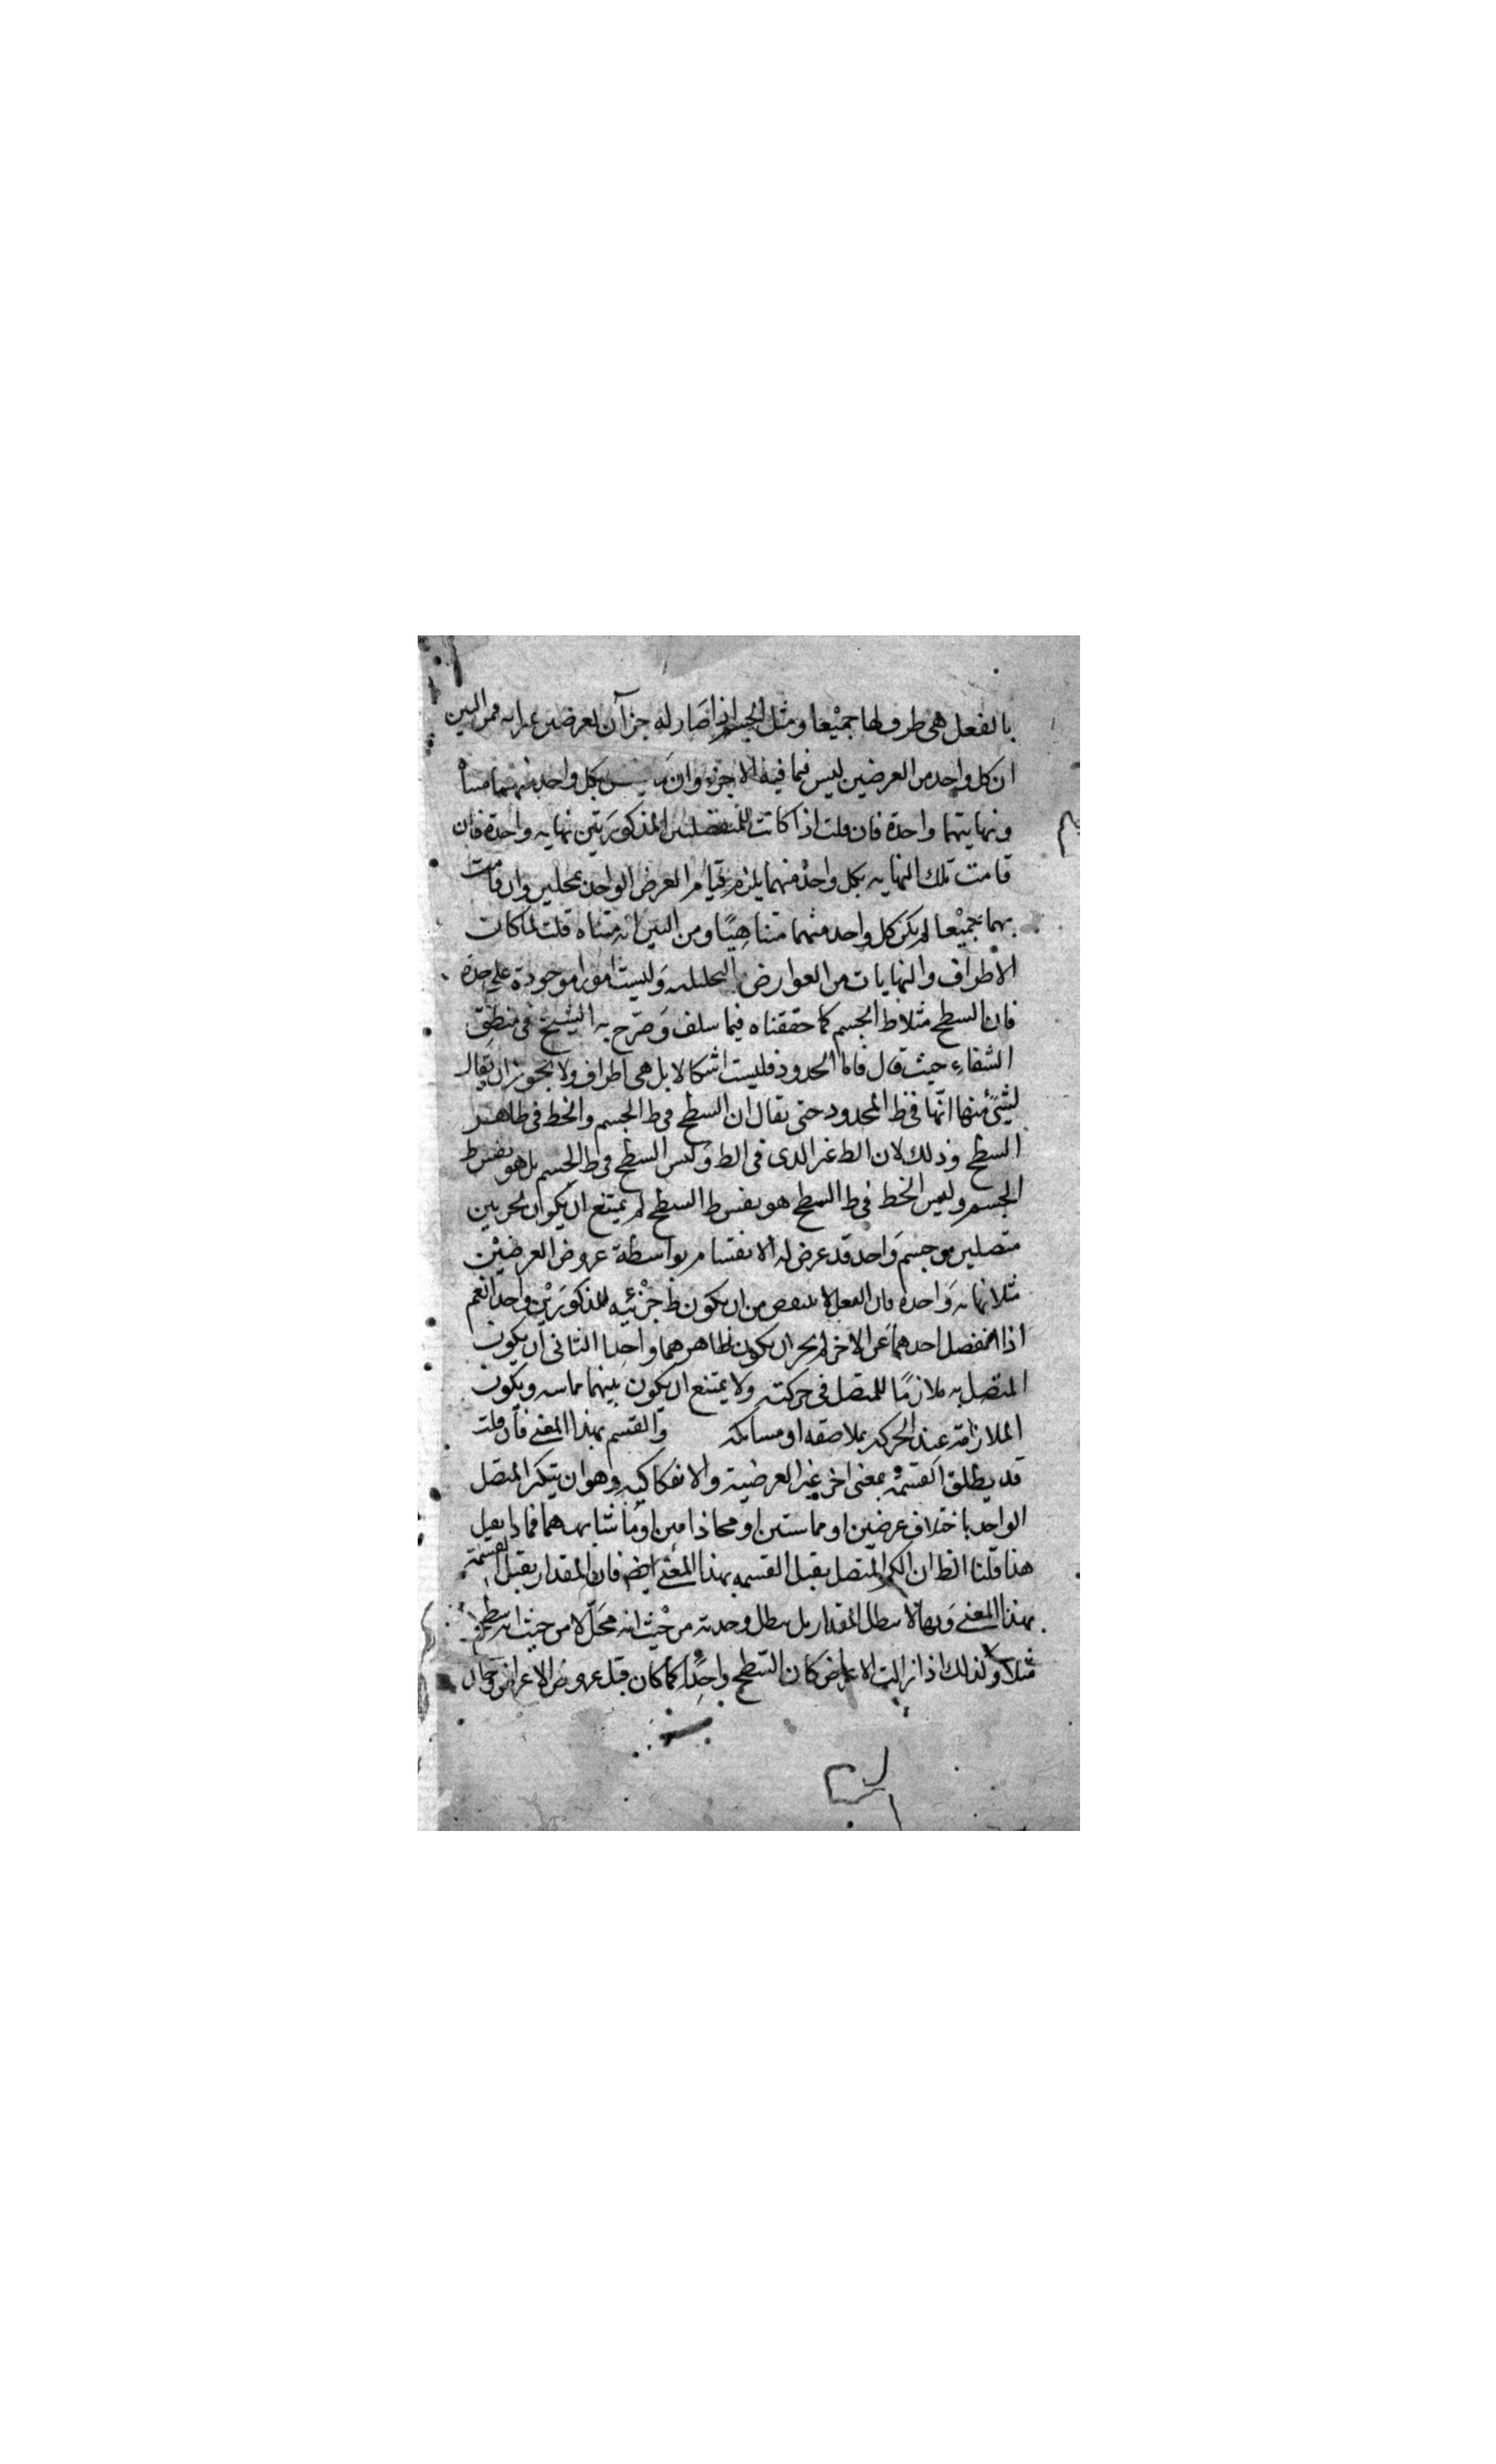 بالفعل هى طرف لها جميعا ومثل الجسم اذا صار له جزآن لعرضين فمن البين
ان كل واحد من العرضين ليس فيما فيه الاجزء وان بكل واحد منهما
ونهايتهما واحدة فان قلت اذا كانت للمتصلين المذكورتين نهايه واحدة فان
قامت تلك النهايه بكل واحد منهما يلزم قيام العرض الواحد بمحلين وان قامت
بهما جميعا لم يكن كل واحد منهما متناهيًا ومن البين انه متناه قلت لما كانت
الاطراف والنهايات من العوارض التحليليه وليست امورا موجودة على حدة
فان السطح مثلا ظ الجسم كما حققناه فيما سلف وصرح به الشيخ فى منطق
الشفاء حيث قال فاما الحدود فليست اشكالا بل هى اطراف ولا يجوز ان يقال
لشىء منها انها فى ظ المحدود حتى يقال ان السطح فى ظ الجسم والخط فى ظاهر
السطح وذلك لان الظ غير الذى فى الظ وليس السطح فى ظ الجسم بل هو نفس ظ
الجسم وليس الخط فى ظ السطح هو نفس ظ السطح لم يمتنع ان يكون لجزئين
متصلين من جسم واحد قد عرض له الانقسام بواسطة عروض العرضين
مثلا نهايه واحدة فان العقل لا ينقبض من ان يكون ظ جزئيه المذكورين واحدا نعم
اذا انفصل احدهما عن الاخر لم يجز ان يكون ظاهرهما واحدا الثانى ان يكون
المتصل به ملازمًا للمتصل فى حركته ولا يمتنع ان يكون بينهما مماسه ويكون
الملازمة عند الحركه بملاصقه او مساكه والقسم بهذا المعنى فان قلت
قد يطلق القسمة بمعنى اخر غير العرضية والانفكاكيه وهو ان يتكثر المتصل
الواحد باختلاف عرضين او مماستين او محاذاتين او ما شابههما فماذا يقبل
هذا قلنا الظ ان الكم المتصل يقبل القسمه بهذا المعنى ايض فان المقدار يقبل القسمة
بهذا المعنى وبها لا يبطل المقدار بل يبطل وحدته من حيث انه محل لا من حيث انه سطح
مثلا ولذلك اذا زالت الاعراض كان السطح واحدًا كما كان قبل عروض الاعراض وحال